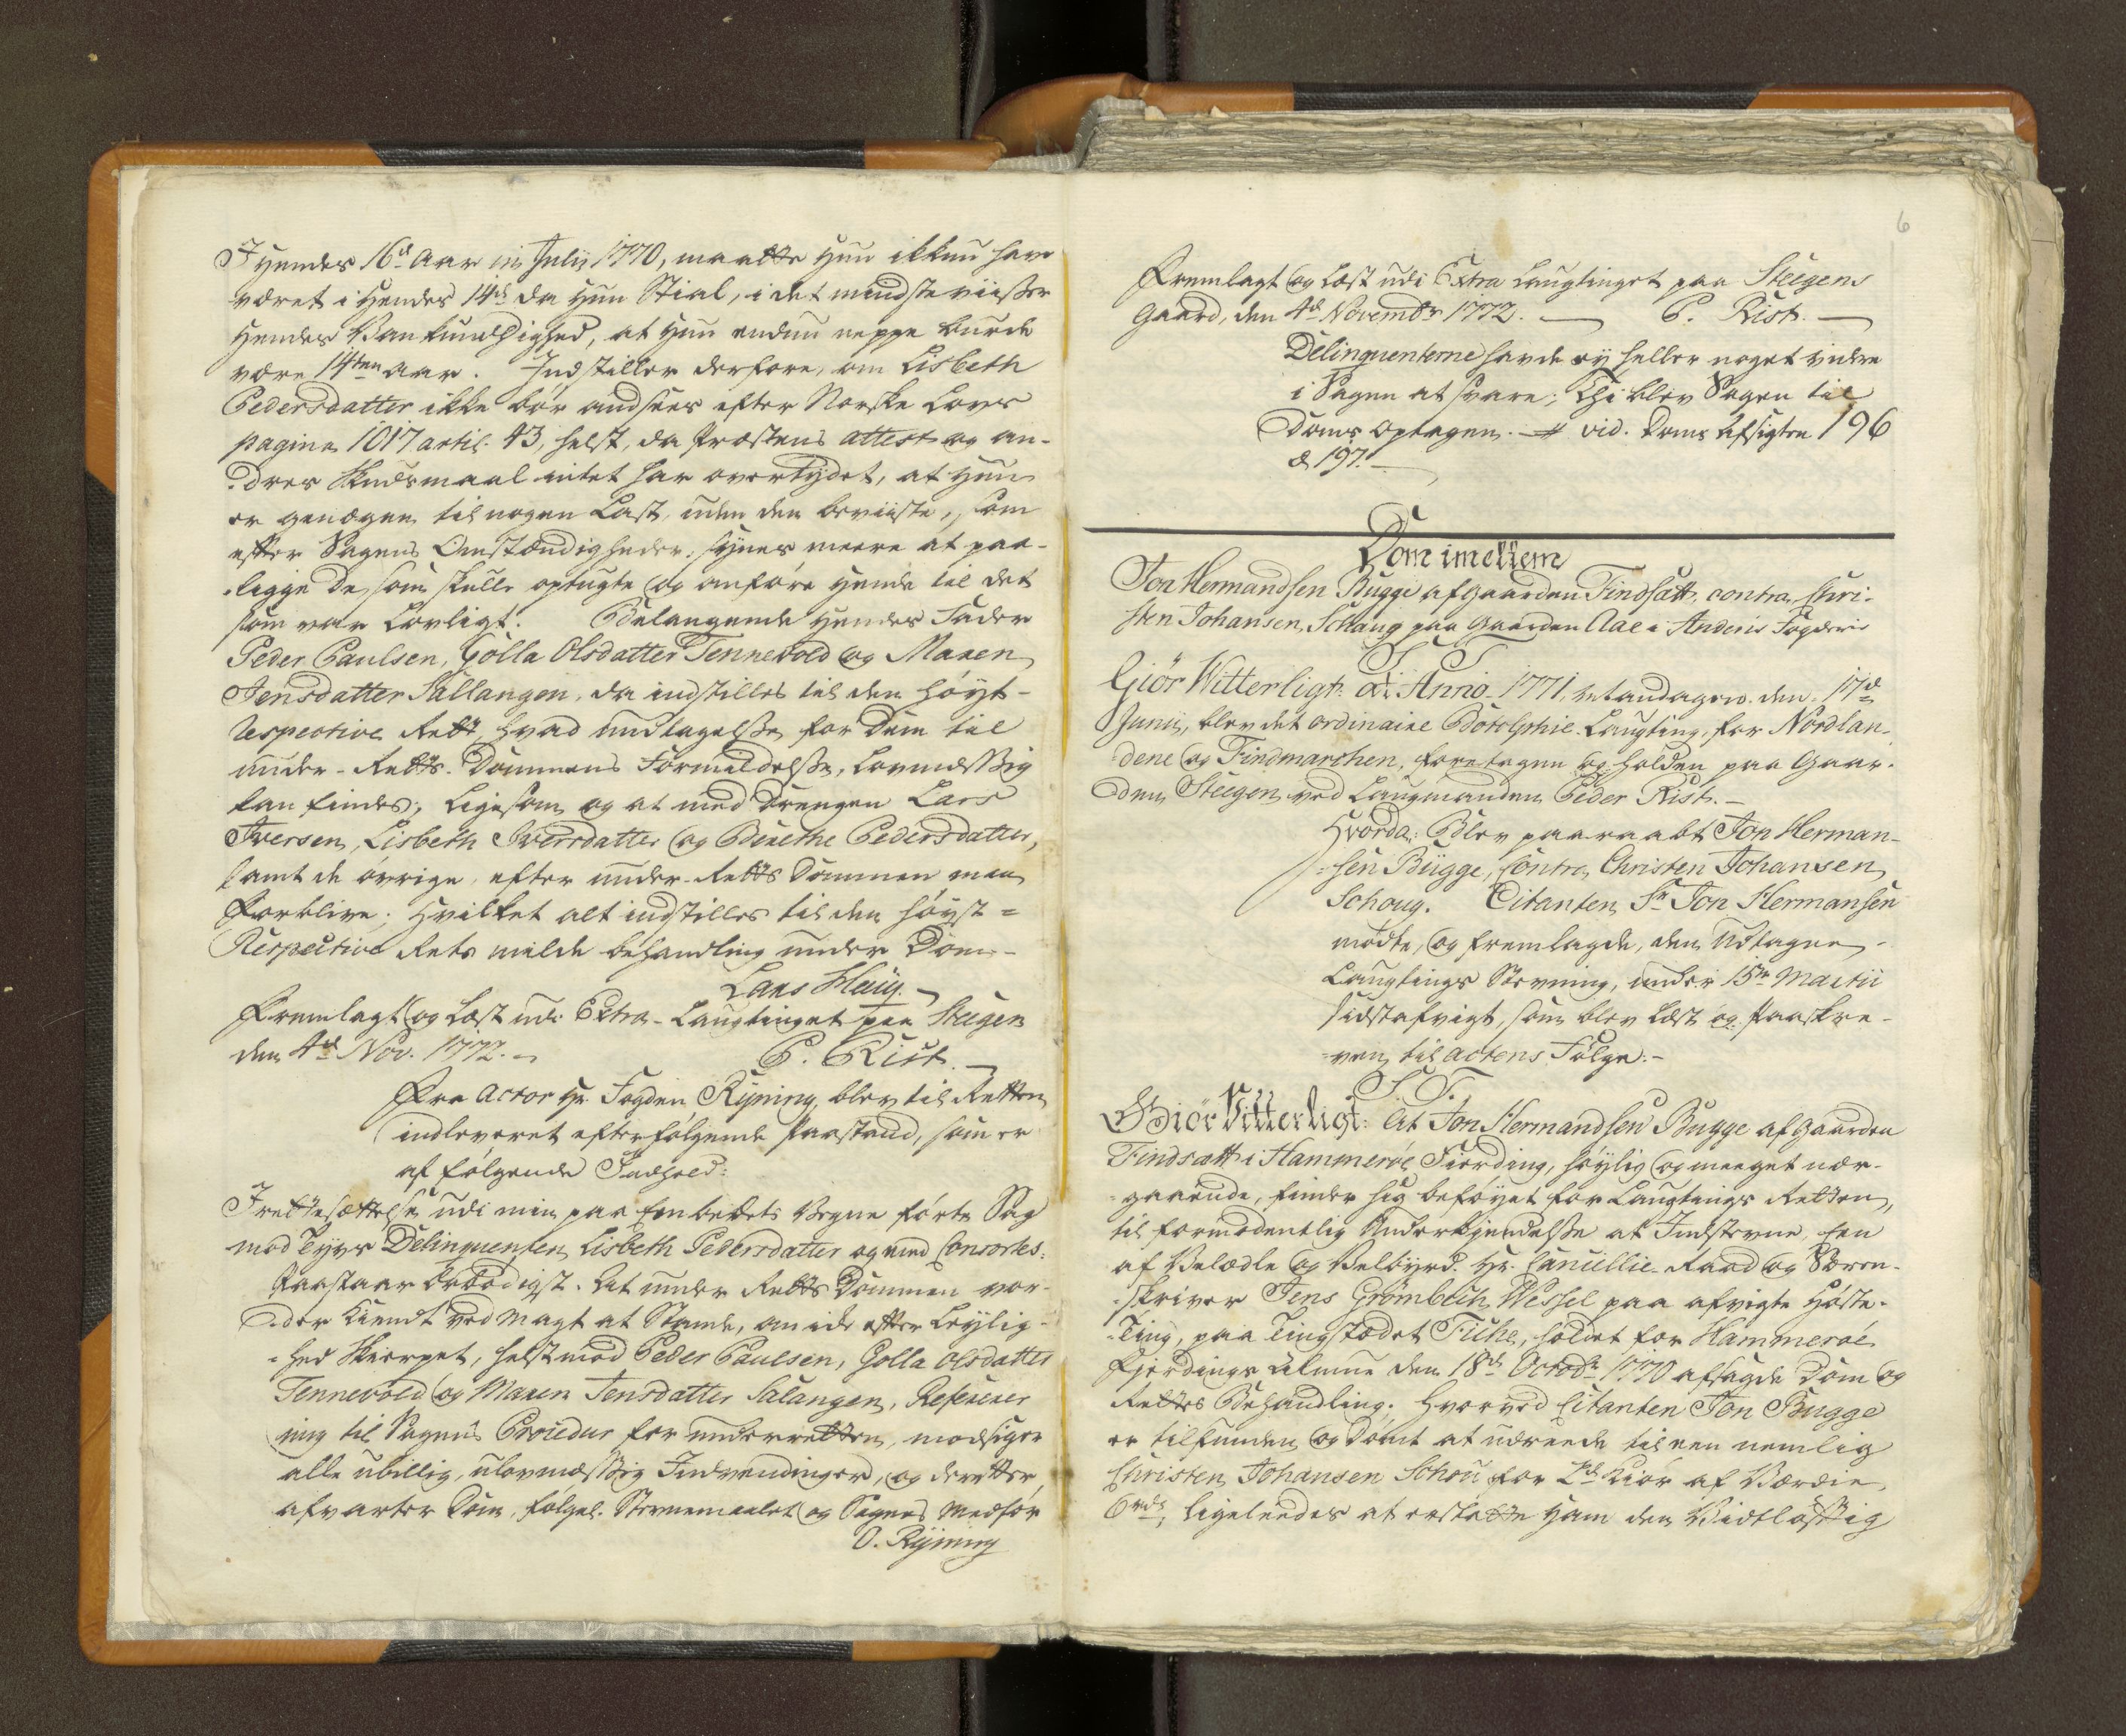 I hendes 16d Aar in Julij 1770, maatte hun ikkun have
været i hendes 14d da hun Stial, i det mindste viisser
hendes Vankundighed, at hun endnu neppe burde
være 14ten Aar. Indstiller derfore, om Lisbeth
Pedersdatter ikke bør ansees efter Norske Lovs
pagina 1017 artic. 43, helst, da Præstens attest og an-
dres Skudsmaal intet har overtydet, at hun
er genægen til nogen Last, uden den beviiste, som
efter Sagens Omstændigheder, synes meere at paa-
ligge de som skulle optugte og anføre hende til det
som var Lovligt. Belangende hendes Fader
Peder Paulsen, Golla Olsdatter Tennevold og Maren
Jensdatter Sallangen, da indstilles til den høyt-
respective Rett, hvad undtagelse for dem til
under-Retts Dommens Formildelse, Lovmæssig
kan findes; Ligesom og at med Drengen Lars
Iversen, Lisbeth Iversdatter og Berethe Pedersdatter,
samt de øvrige, efter under-Retts Dommen maa
forblive; hvilket alt indstilles til den høyst=
Respective Rets milde behandling under Dom-
Lars Høig.
Fremlagt og Læst udi Extra-Laugtinget paa Steigen
den 4d Nov. 1772. P. Rist.
Fra Actor Hr. Fogden Ryning, blev til Retten
indleveret efterfølgende Paastand, som er
af følgende Indhold:
Irettesættelse udi min paa Embedets Vegne førte Sag
mod Tyvs Delinquenten Lisbeth Pedersdatter og med Consortes:
Paastaar ærbødigst. At under Retts Dommen vor-
der kiendt ved Magt at Stande, en ide efter Leylig-
hed Skierpet, helst mod Peder Paulsen, Golla Olsdatter
Tennevold og Maren Jensdatter Salangen, Refererer
mig til Sagens Procedur for underretten, modsiger
alle ubillig, ulovmæssig Indvendinger, og derefter
afvarter Dom, følgel. Stevnemaalet og Sagens medfør
O. Ryning
6
Fremlagt og Læst udi Extra Laugtinget paa Steigens
Gaard, den 4d Novembr 1772. P. Rist.
Delinquenterne havde ey heller noget videre
i Sagen at svare; Thi blev Sagen til
Doms optagen. vid. Doms Afsigten 196
& 197.
Dom imellem
Jon Hermandsen Bugge af Gaarden Findsætt, contra Chri-
sten Johansen Schaug paa Gaarden Aae i Andenis Fogderie
S. T.
Giör Witterligt: At Anno 1771, retandagen den 17d
Junii, blev det ordinaire Botolphie Laugting, for Nordlan-
dene og Findmarchen, foretagen og holden paa Gaar-
den Steegen ved Laugmanden Peder Rist.
Hvorda: Blev paaraabt Jon Herman-
sen Bugge, Contra Christen Johansen
Schoug. Citanten Sr Jon Hermansen
mødte, og fremlagde, den udtagne
Laugtings Stevning, under 15de Martii
sidstafvigt, som blev Læst og Paaskre-
ven til Actens Følge:
S. T.
Giör Vitterligt: At Jon Hermandsen Bugge af Gaarden
Findsætt i Hammerøe Fierding, høylig og meeget nær-
gaaende, finder sig beføyet for Laugtings Retten,
til formodentlig Underkiendelse at Indstevne, Een
af Velædle og Velbyrd. Hr. Cancellie Raad og Soren-
skriver Jens Grømbech Wessel paa afvigte Høste-
Ting, paa Tingstædet Fiche, holdet for Hammerøe
Fierdings Almue den 18d Octobr 1770 afsagde Dom og
Rettes Behandling; hvorved Citanten Jon Bugge
er tilfunden og dømt at udreede til een nemlig
Christen Johansen Schou for 2de Kiör af Værdie
6 rdr, ligeleedes at erstatte ham den Vidtløftig